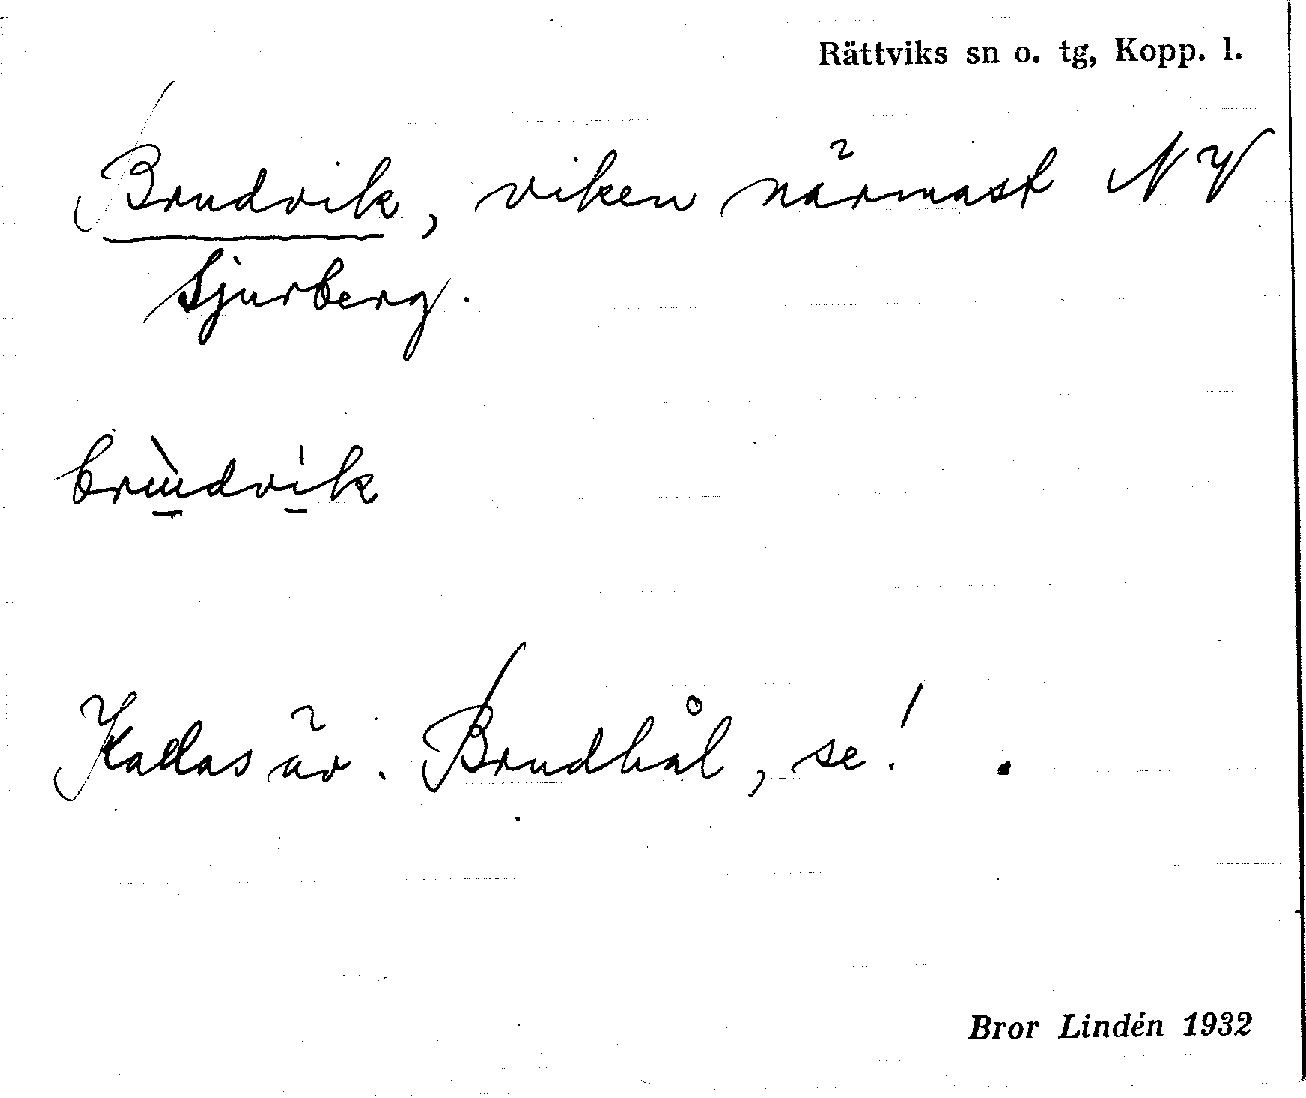 Rättviks sn o. tg, Kopp. l.
Brudvik, viken närmast NV
Sjurberg.
brùdvik
Kallas äv. Brudhål, se!
Bror Lindén 1932